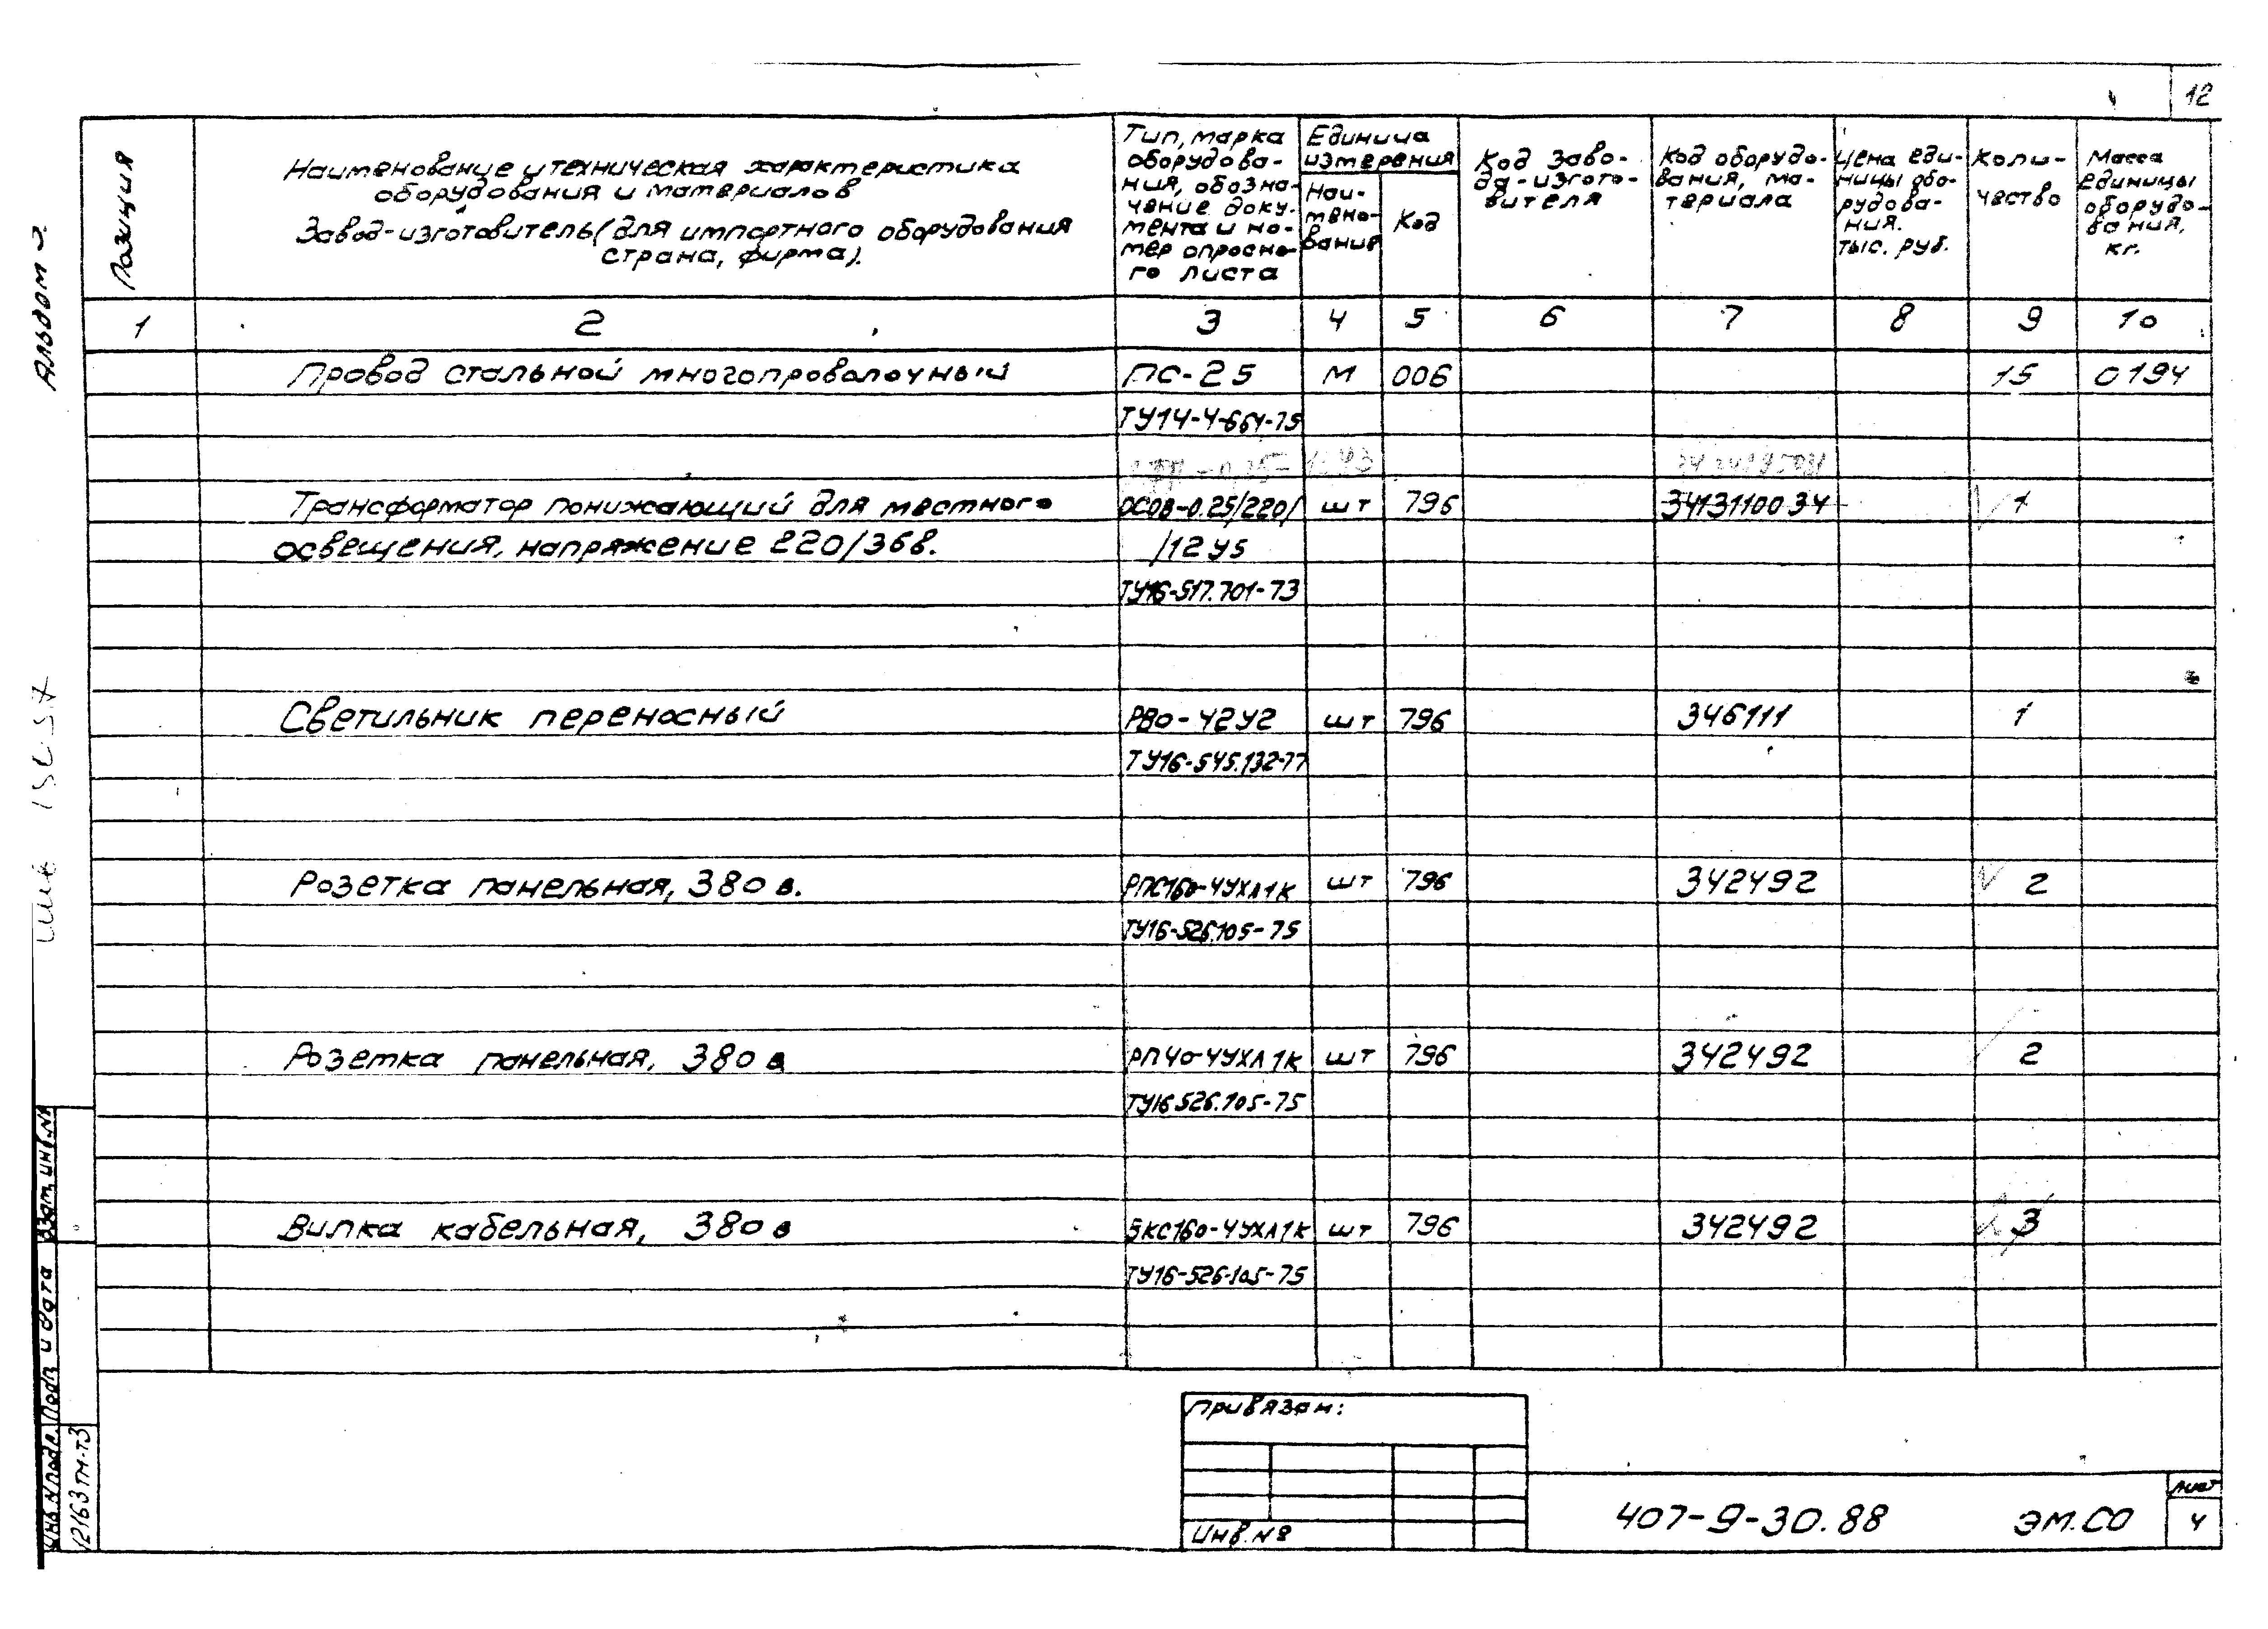 12
Альбом
Позиция
Наименование и техническая характеристика
оборудования и материалов
Завод-изготовитель (для импортного оборудования
страна, фирма).
Тип, марка
оборудова-
ния, обозна-
чение доку-
мента и но-
мер опросно-
го листа
Единица
измерения
Наи-
мено-
вание
Код
Код заво-
да-изгото-
вителя
Код оборудо-
вания, ма-
териала
Цена еди-
ницы обо-
рудова-
ния.
тыс. руб.
Коли-
чество
Масса
единицы
оборудо-
вания,
кг.
1 2 3 4 5 6 7 8 9 10
Провод стальной многопроволочный ПС-25 М 006 15 0194
ТУ14-4-661-75
Трансформатор понижающий для местного ОСОВ-0.25/220/ шт 796 3413110034 1
освещения, напряжение 220/36в. /12У5
ТУ16-517.701-73
Светильник переносный РВО-42У2 шт 796 346111 1
ТУ16-545.132-77
Розетка панельная, 380 в. РПС160-4УХЛ1К шт 796 342492 2
ТУ16-526.105-75
Розетка панельная, 380 в РП40-4УХЛ1К шт 796 342492 2
ТУ16 526.105-75
Вилка кабельная, 380 в ВКС160-4УХЛ1К шт 796 342492 3
ТУ16-526-105-75
Взам. инв. №
Подп. и дата
Инв. № подл.
12163ТМ-Т3
Привязан:
Инв. №
407-9-30.88 ЭМ.СО
Лист
4